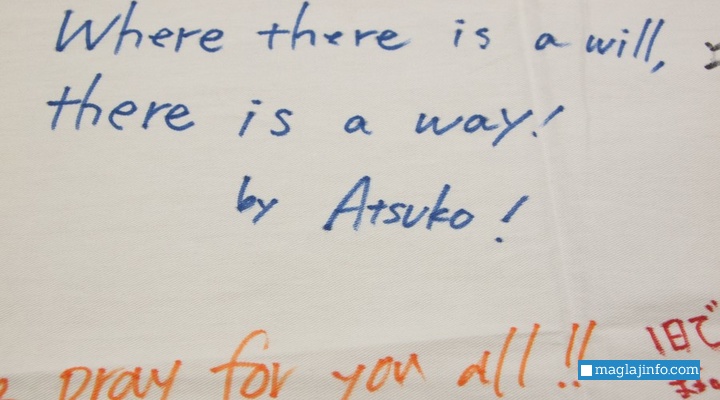 Where there is a will,
there is a way!
by Atsuko!
pray for you all!!
1日で
maglajinfo.com